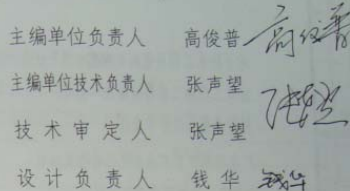 主编单位负责人 高俊普 高俊普
主编单位技术负责人 张声望
技术审定人 张声望
设计负责人 钱华 钱华